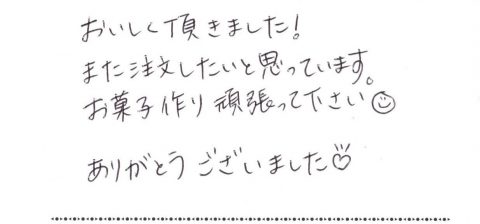 おいしく頂きました!
また注文したいと思っています。
お菓子作り頑張って下さい☺
ありがとうございました♡